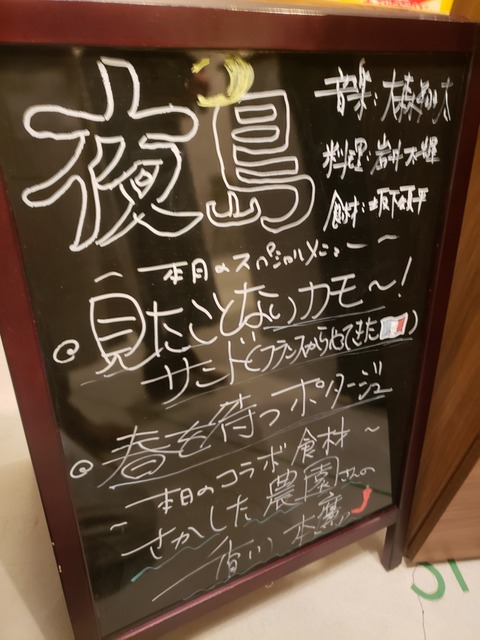 夜鳥
音楽:大森
料理:岩井
食材:坂下
〜本日のスペシャルメニュー〜
見たことないカモ〜!
サミドとフランスからやってきた
春を待つポタージュ
〜本日のコラボ食材〜
さかした農園さんの
香川本鷹